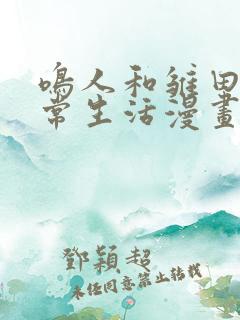 鳴人和雛田
常生活漫畫
鄧穎超
未任同意禁止轉載